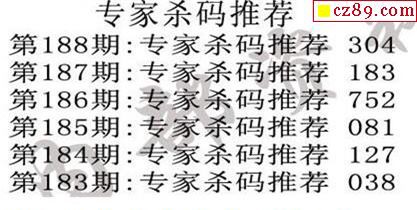 cz89.com
专家杀码推荐
第188期:专家杀码推荐 304
第187期:专家杀码推荐 183
第186期:专家杀码推荐 752
第185期:专家杀码推荐 081
第184期:专家杀码推荐 127
第183期:专家杀码推荐 038